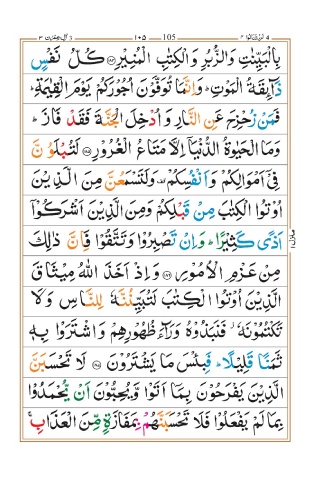 105
بِالْبَيِّنٰتِ وَالزُّبُرِ وَالْكِتٰبِ الْمُنِيْرِ ۝ كُلُّ نَفْسٍ
ذَآئِقَةُ الْمَوْتِ ؕ وَاِنَّمَا تُوَفَّوْنَ اُجُوْرَكُمْ يَوْمَ الْقِيٰمَةِ ؕ
فَمَنْ زُحْزِحَ عَنِ النَّارِ وَاُدْخِلَ الْجَنَّةَ فَقَدْ فَازَ ؕ
وَمَا الْحَيٰوةُ الدُّنْيَآ اِلَّا مَتَاعُ الْغُرُوْرِ ۝ لَتُبْلَوُنَّ
فِيْٓ اَمْوَالِكُمْ وَاَنْفُسِكُمْ وَلَتَسْمَعُنَّ مِنَ الَّذِيْنَ
اُوْتُوا الْكِتٰبَ مِنْ قَبْلِكُمْ وَمِنَ الَّذِيْنَ اَشْرَكُوْٓا
اَذًى كَثِيْرًا ؕ وَاِنْ تَصْبِرُوْا وَتَتَّقُوْا فَاِنَّ ذٰلِكَ
مِنْ عَزْمِ الْاُمُوْرِ ۝ وَاِذْ اَخَذَ اللّٰهُ مِيْثَاقَ
الَّذِيْنَ اُوْتُوا الْكِتٰبَ لَتُبَيِّنُنَّهٗ لِلنَّاسِ وَلَا
تَكْتُمُوْنَهٗ ؗ فَنَبَذُوْهُ وَرَآءَ ظُهُوْرِهِمْ وَاشْتَرَوْا بِهٖ
ثَمَنًا قَلِيْلًا ؕ فَبِئْسَ مَا يَشْتَرُوْنَ ۝ لَا تَحْسَبَنَّ
الَّذِيْنَ يَفْرَحُوْنَ بِمَآ اَتَوْا وَّيُحِبُّوْنَ اَنْ يُّحْمَدُوْا
بِمَا لَمْ يَفْعَلُوْا فَلَا تَحْسَبَنَّهُمْ بِمَفَازَةٍ مِّنَ الْعَذَابِ ۚ